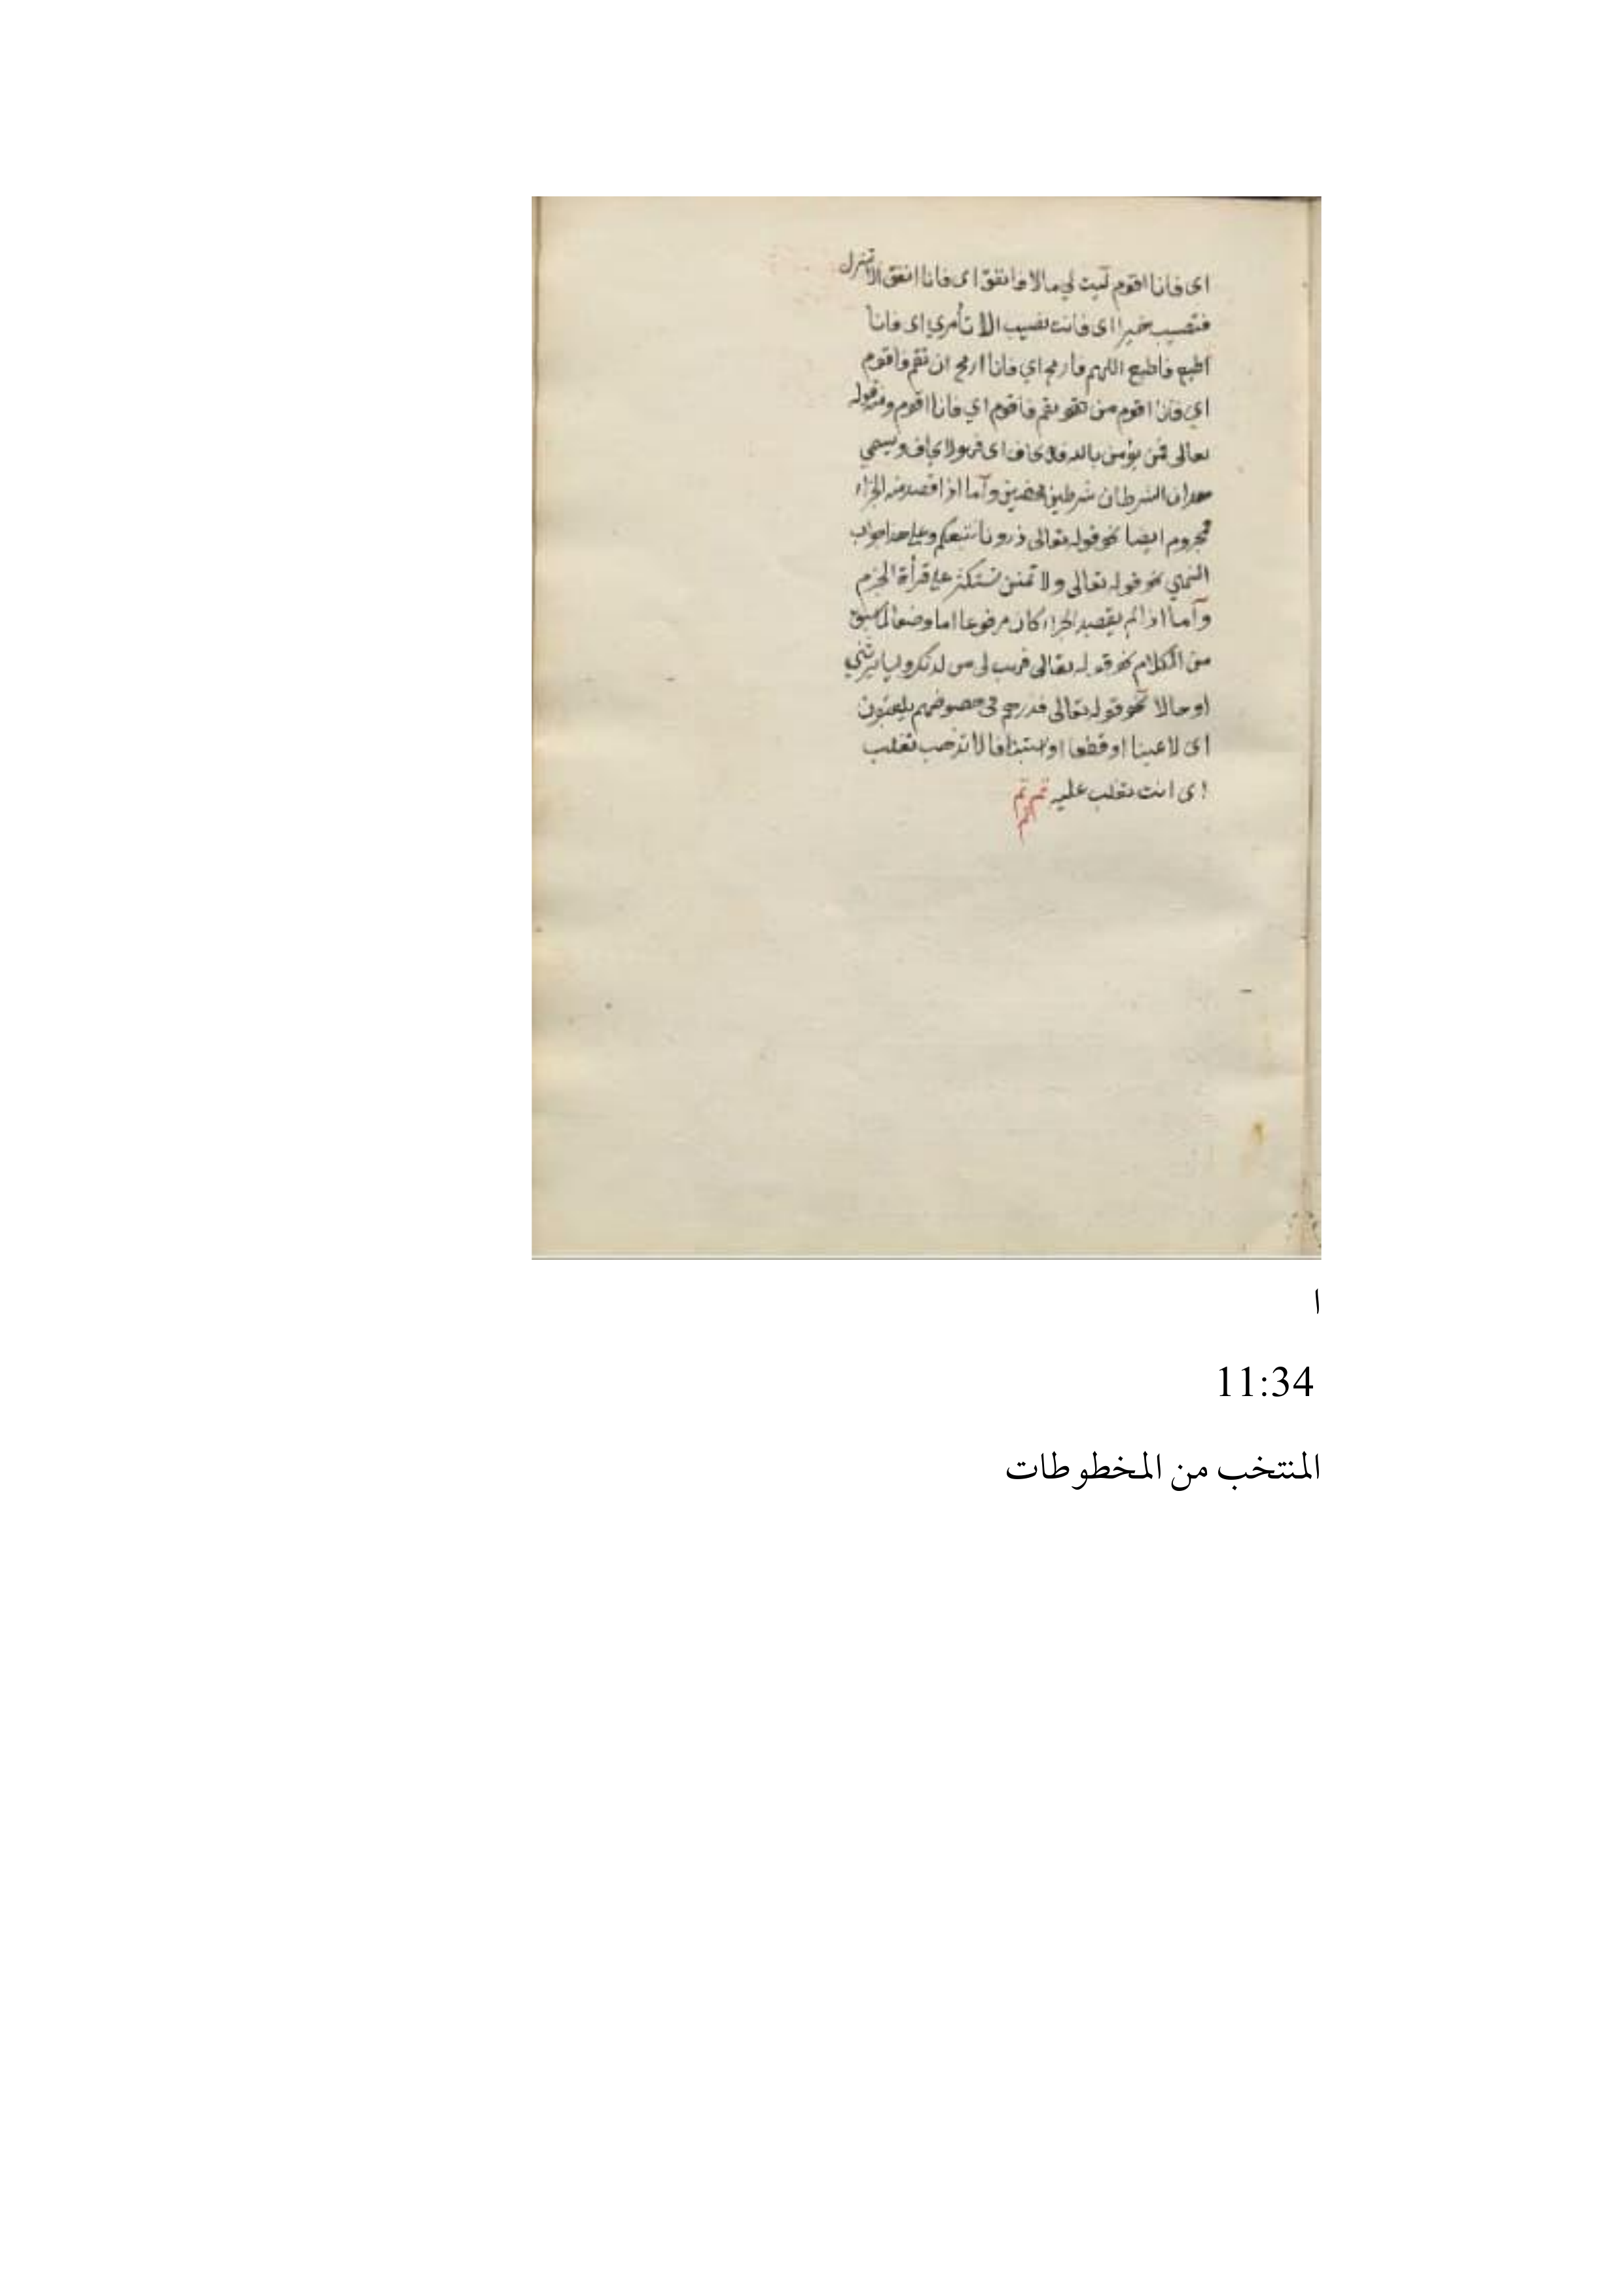 اى فانا اقوم ليت لي مالا فانفق اى فانا انفق الا تنزل
فتصيب خيرا اى فانت تصيب الا تأمرني اى فانا
اطيع فاطيع اللهم فارمح اي فانا ارمح ان تقم فاقوم
اي فانا اقوم من تقم فاقوم اي فانا اقوم ومنه قوله
تعالى فمن يؤمن بالله فلا يخاف اى فهو لا يخاف ويسمي
هذان الشرطان شرطين محضين وأما اذا قصد منه الجزاء
فمجزوم ايضا نحو قوله تعالى ذرونا نتبعكم وعلى هذا جواب
النهي نحو قوله تعالى ولا تمنن تستكثر على قرأة الجزم
وأما اذا لم يقصد الجزاء كان مرفوعا اما وصفا لما سبق
من الكلام نحو قوله تعالى فهب لي من لدنك وليا يرثني
او حالا نحو قوله تعالى فذرهم في خوضهم يلعبون
اى لاعبين او قطعا او استينافا لا تذهب تغلب
اى انت تغلب عليه تم تم
تم
ا
11:34
المنتخب من المخطوطات